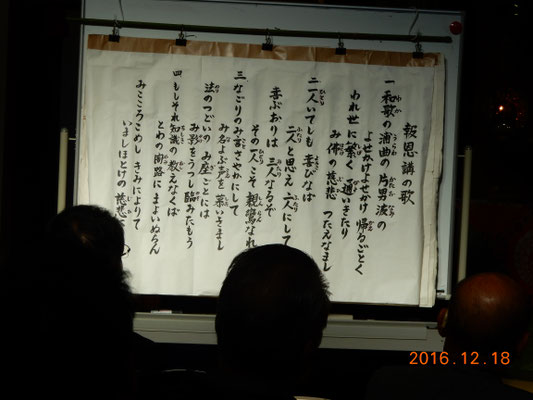 報恩講の歌
一 和歌の浦曲の片男波の
よせかけよせかけ帰るごとく
われ世に繁く通いきたり
み佛の慈悲 つたえなまし
二 一人いてしも 喜びなば
二人と思え 二人にして
喜ぶおりは 三人なるぞ
その一人こそ 親鸞なれ
三 なごりのみ言さやかにして
み名よぶ声を 慕いきまし
法のつどいの み座ごとには
み影をうつし臨みたもう
四 もしそれ知識の教えなくば
とわの闇路にまよいぬらん
みこころこめし きみによりて
いましほとけの 慈悲に
2016.12.18